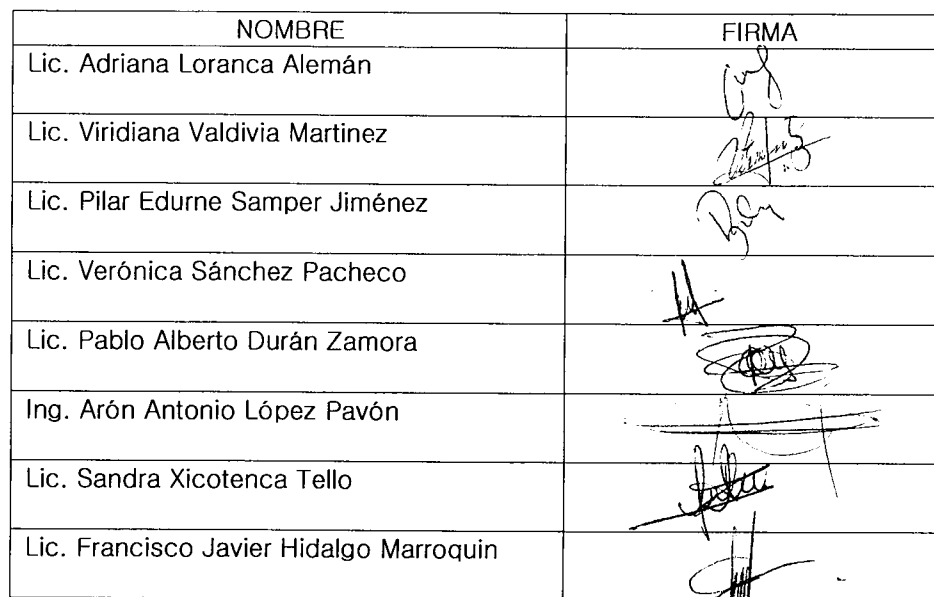 NOMBRE FIRMA
Lic. Adriana Loranca Alemán
Lic. Viridiana Valdivia Martinez
Lic. Pilar Edurne Samper Jiménez
Lic. Verónica Sánchez Pacheco
Lic. Pablo Alberto Durán Zamora
Ing. Arón Antonio López Pavón
Lic. Sandra Xicotenca Tello
Lic. Francisco Javier Hidalgo Marroquin